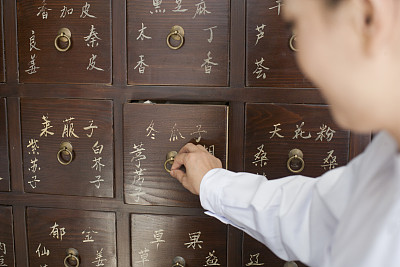 香加皮
良姜
秦皮
木香
丁香
芦荟
莱菔子
紫苏子
白芥子
冬瓜子
葶苈子
天花粉
桑
桑
郁金
仙
草果
草
益